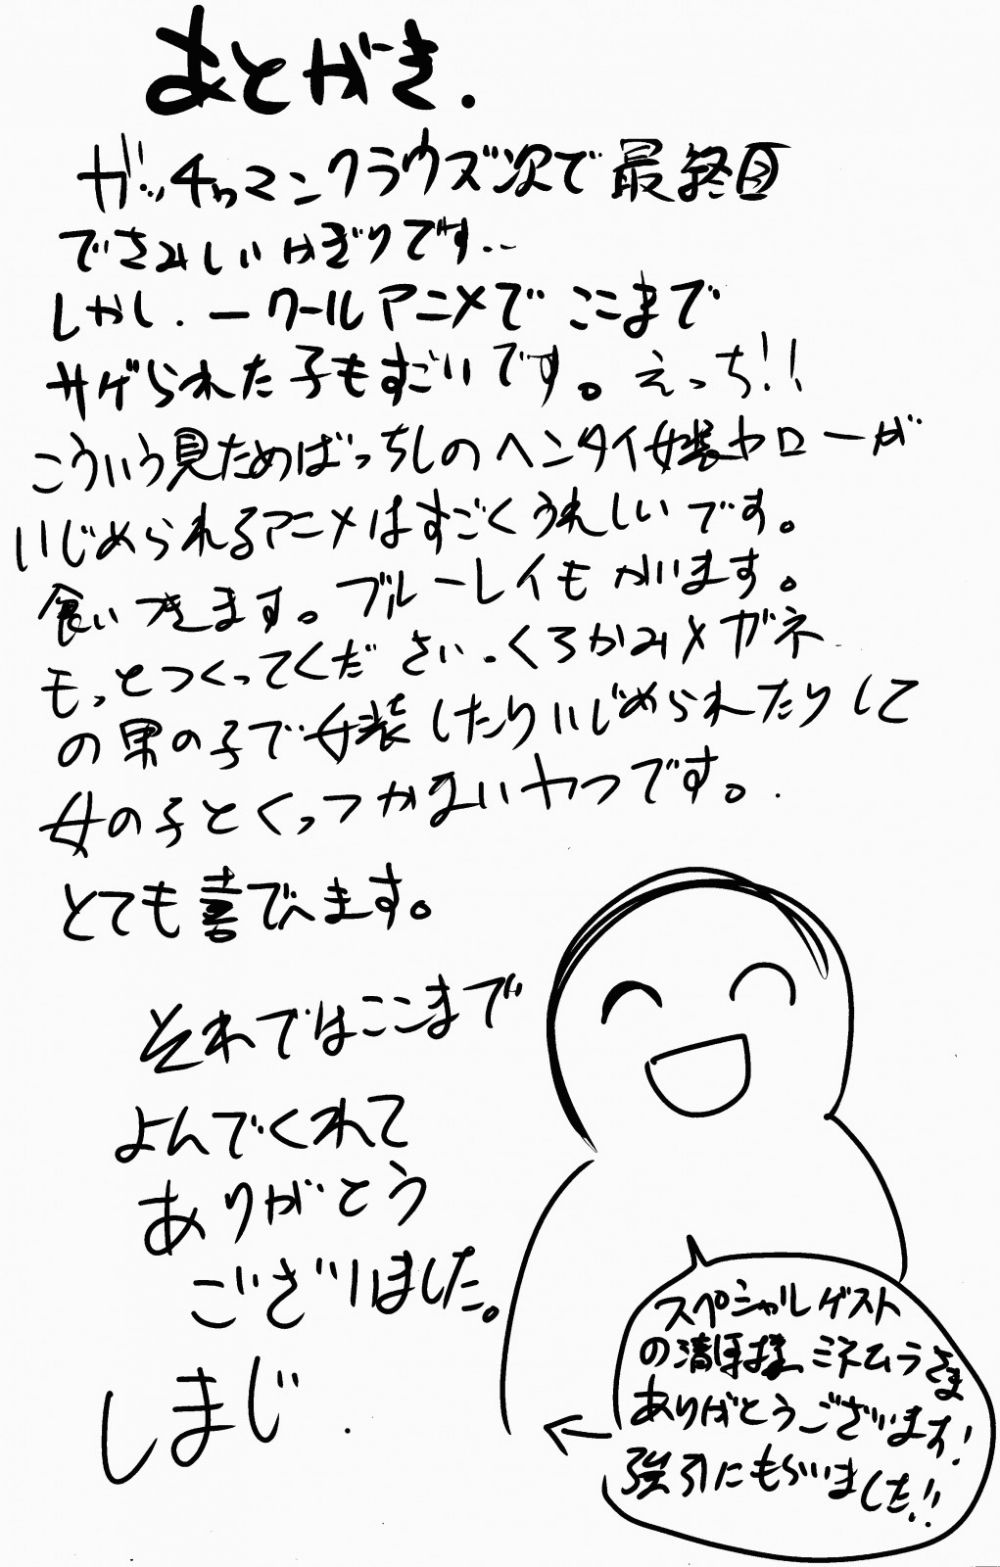 あとがき.
ガッチャマンクラウズ次で最終回
でさみしいかぎりです..
しかし.一クールアニメでここまで
サゲられた子もすごいです。えっち!!
こういう見ためばっちしのヘンタイ女装ヤローが
いじめられるアニメはすごくうれしいです。
食いつきます。ブルーレイもかいます。
もっとつくってください.くろかみメガネ
の男の子で女装したりいじめられたりして
女の子とくっつかないヤつです。.
とても喜びます。
それではここまで
よんでくれて
ありがとう
ございました。
しまじ.
スペシャルゲスト
の清孫様、ミネムラさま
ありがとうございます!
強引にもらいました!!